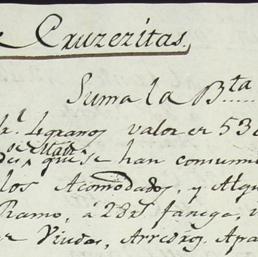 e Cruzeritas.
Suma la Bta....
valor er 530
que se han consumi
los Acomodados, y Alq
Ramo, á 28rs fanega,
Viudas, Arreños, Apa